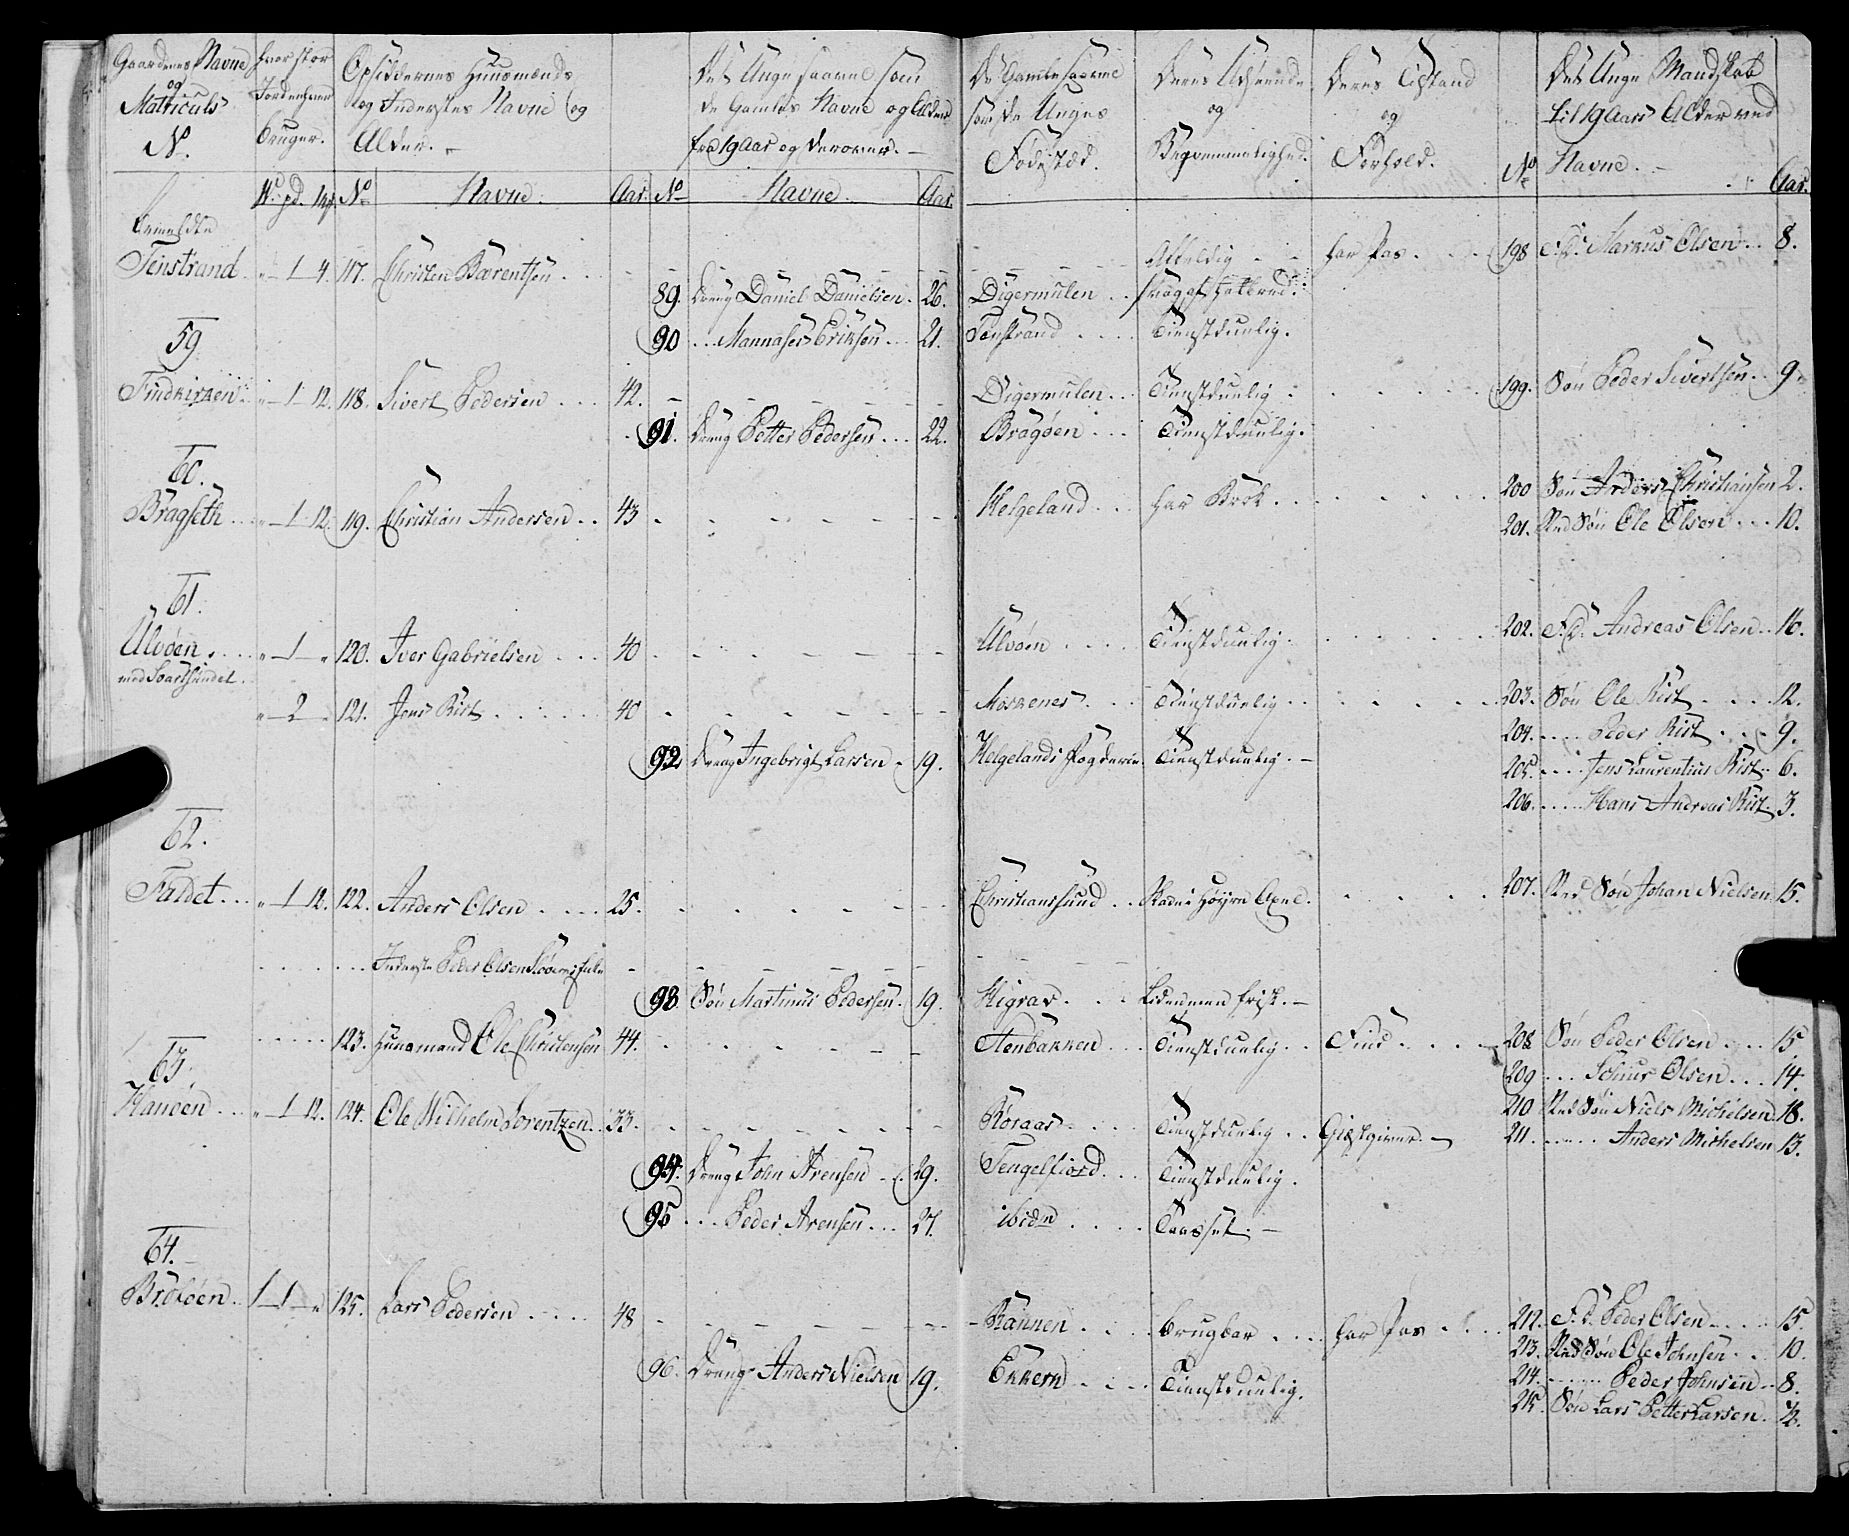 Gaardenes Navne og Matriculs No.
Hvor stor Jordenhver bruger.
Opsiddernes Huusmænds og Inderstes Navne og Alder.
Det Unge saavel som de Gamles Navne og Alder fra 19 Aar og derover.
De Gamle saavel som de Unges Fødestæd.
Deres Udseende og Beqvemmelighed.
Deres Tilstand og Forhold.
Det Unge Mandskab til 19 Aars Alder ved
No Navne. Aar.
W. pd. No Navne. Aar. No Navne. Aar.
Anmeldte
Tenstrand " 1 4. 117. Christen Bærentsen Affeldig har Pas 198 F.D. Markus Olsen 8.
89. Dreng Daniel Danielsen. 26. Digermulen
90 Mannases Eriksen 21. Tenstrand Tienstduelig.
59
Findkirken " 1 12. 118. Sivert Pedersen 42. Digermulen Tienstduelig 199. Søn Peder Sivertsen 9.
91. Dreng Petter Pedersen 22. Bragøen Tienstduelig.
60.
Bragseth " 1 12. 119. Christian Andersen 43 Helgeland har Brok 200 Søn Anders Christiansen 2.
201. Sted Søn Ole Olsen 10.
61.
Ulvøen " 1 " 120. Iver Gabrielsen 40 Ulvøen Tienstduelig 202. F.D. Andreas Olsen 16.
med Svartsundet
" 2 " 121. Jens Rist 40 Moskenes Tienstduelig 203. Søn Ole Rist 12.
204. Peder Rist 9.
92. Dreng Ingebrigt Larsen 19. Helgelands Fogderie Tienstduelig. 205. Jens Laurentius Rist 6.
206. Hans Andreas Rist 3.
62.
Faldet " 1 12. 122. Anders Olsen 25. Christianssund Skade i Høyre Axel. 207. Sted Søn Johan Nielsen 15.
Inderste Peder Olsen
93 Søn Martinus Pedersen. 19. Higrav Liden men frisk.
123. Huusmand Ole Christensen 44. Stenbakken Tienstduelig Find 208 Søn Peder Olsen 15
63.
209 Schiur Olsen 14.
Hanøen " 1 12. 124. Ole Wilhelm Lorentzen 33. Røraas Tienstduelig Giæstgiver 210 Sted Søn Niels Michelsen 18.
211. Anders Michelsen 13.
94. Dreng John Arensen 29. Tengelfiord Tienstduelig.
95 Peder Arensen 27. ibidm Taasset.
64.
Brøløen 1 1 " 125. Lars Pedersen 48 Rannen brugbar har Pas 212. F.D. Peder Olsen 15.
213. Sted Søn Ole Johnsen 10.
96. Dreng Anders Nielsen 19. Ekkern Tienstduelig. 214. Peder Johnsen 8.
215. Søn Lars Petter Larsen